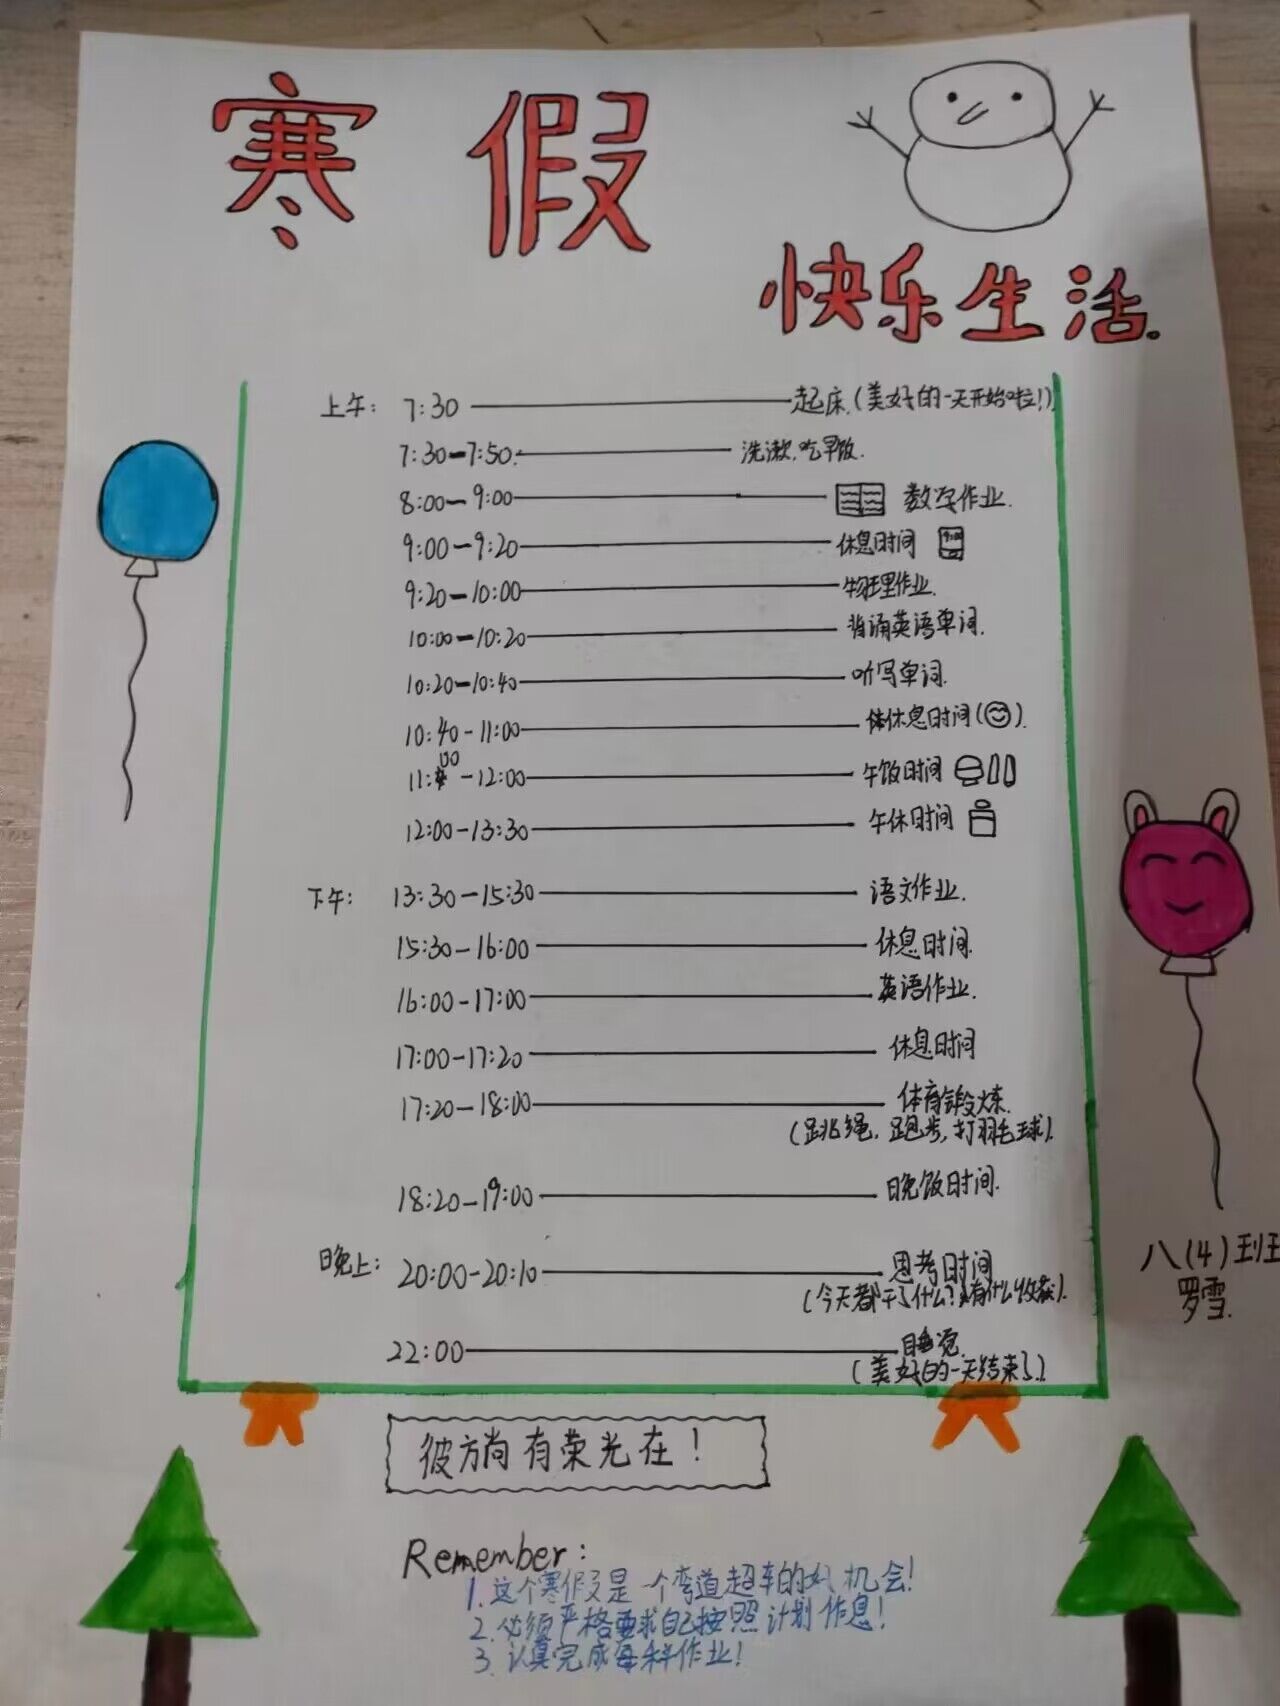 寒假
快乐生活。
上午: 7:30 起床.(美好的一天开始啦!)
7:30-7:50. 洗漱.吃早饭.
8:00-9:00 数学作业.
9:00-9:20 休息时间
9:20-10:00 物理作业.
10:00-10:20 背诵英语单词.
10:20-10:40 听写单词.
10:40-11:00 休息时间( ).
11:00-12:00 午饭时间
12:00-13:30 午休时间
下午: 13:30-15:30 语文作业.
15:30-16:00 休息时间.
16:00-17:00 英语作业.
17:00-17:20 休息时间
17:20-18:00 体育锻炼.
(跳绳,跑步,打羽毛球).
18:20-19:00 晚饭时间.
晚上: 20:00-20:10 思考时间
(今天都干了什么?有什么收获).
22:00 睡觉.
(美好的一天结束了.)
八(4)班
罗雪.
彼方尚有荣光在!
Remember:
1.这个寒假是一个弯道超车的好机会!
2.必须严格要求自己按照计划作息!
3.认真完成每科作业!